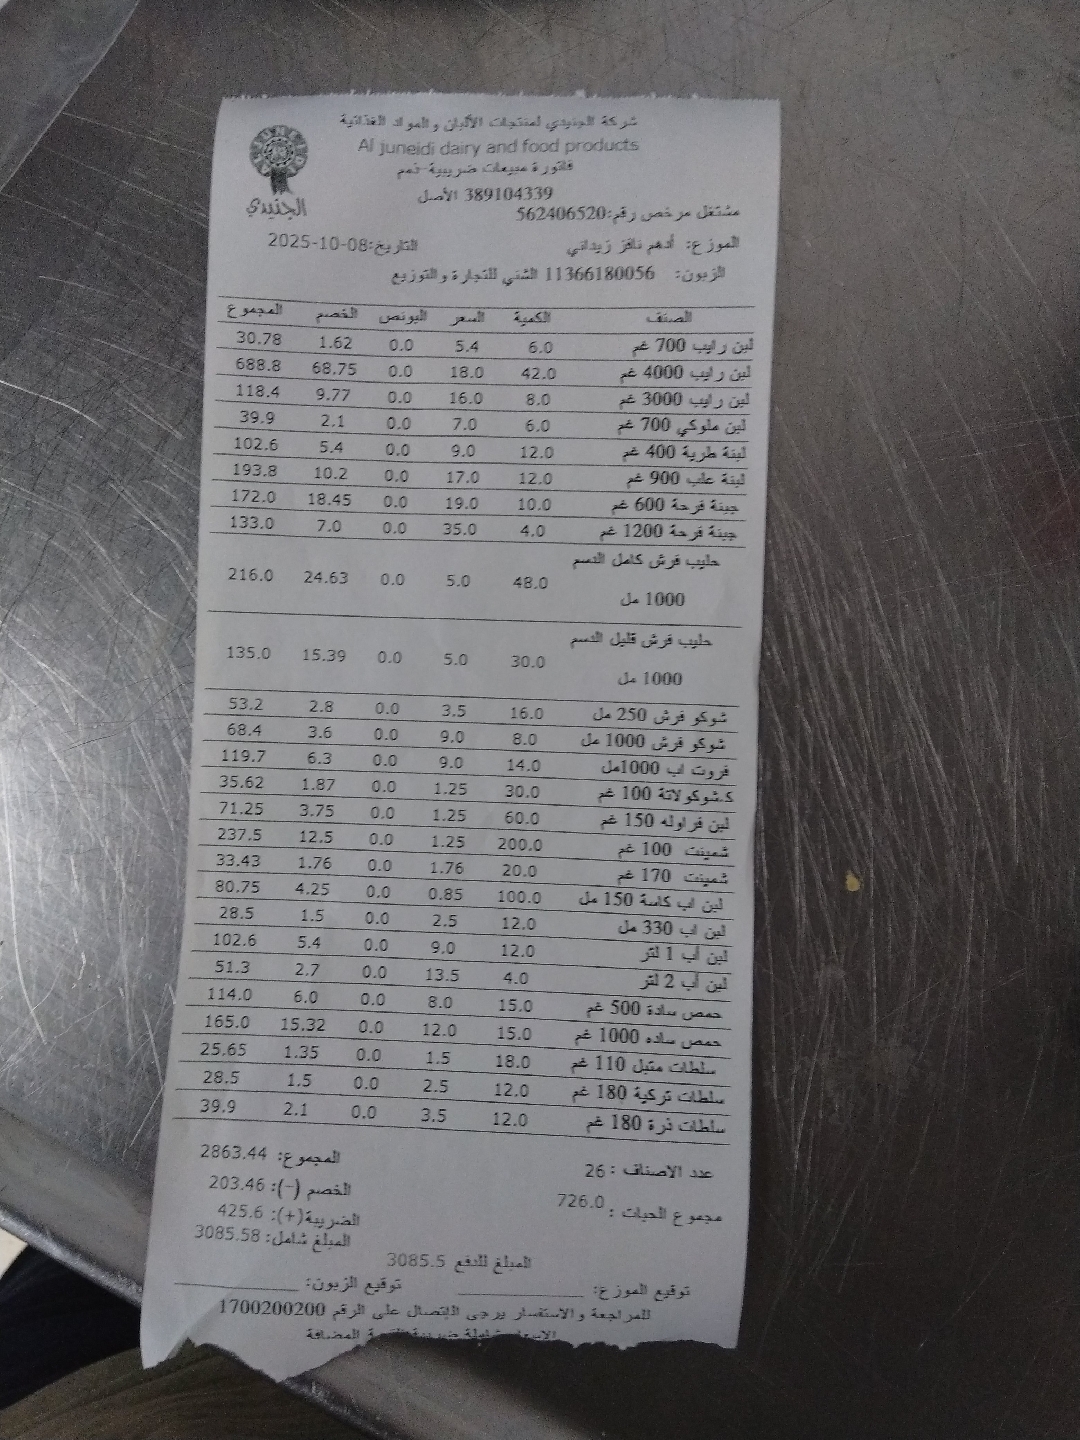 شركة الجنيدي لمنتجات الألبان والمواد الغذائية
Al juneidi dairy and food products
فاتورة مبيعات ضريبية-ذمم
الجنيدي
389104339 الأصل
مشتغل مرخص رقم:562406520
الموزع: أدهم نافز زيداني التاريخ:2025-10-08
الزبون: 11366180056 الشني للتجارة والتوزيع
الصنف الكمية السعر البونص الخصم المجموع
لبن رايب 700 غم 6.0 5.4 0.0 1.62 30.78
لبن رايب 4000 غم 42.0 18.0 0.0 68.75 688.8
لبن رايب 3000 غم 8.0 16.0 0.0 9.77 118.4
لبن ملوكي 700 غم 6.0 7.0 0.0 2.1 39.9
لبنة طرية 400 غم 12.0 9.0 0.0 5.4 102.6
لبنة علب 900 غم 12.0 17.0 0.0 10.2 193.8
جبنة فرحة 600 غم 10.0 19.0 0.0 18.45 172.0
جبنة فرحة 1200 غم 4.0 35.0 0.0 7.0 133.0
حليب فرش كامل الدسم
1000 مل 48.0 5.0 0.0 24.63 216.0
حليب فرش قليل الدسم
1000 مل 30.0 5.0 0.0 15.39 135.0
شوكو فرش 250 مل 16.0 3.5 0.0 2.8 53.2
شوكو فرش 1000 مل 8.0 9.0 0.0 3.6 68.4
فروت اب 1000مل 14.0 9.0 0.0 6.3 119.7
ك.شوكولاتة 100 غم 30.0 1.25 0.0 1.87 35.62
لبن فراوله 150 غم 60.0 1.25 0.0 3.75 71.25
شمينت 100 غم 200.0 1.25 0.0 12.5 237.5
شمينت 170 غم 20.0 1.76 0.0 1.76 33.43
لبن اب كاسة 150 مل 100.0 0.85 0.0 4.25 80.75
لبن اب 330 مل 12.0 2.5 0.0 1.5 28.5
لبن أب 1 لتر 12.0 9.0 0.0 5.4 102.6
لبن أب 2 لتر 4.0 13.5 0.0 2.7 51.3
حمص سادة 500 غم 15.0 8.0 0.0 6.0 114.0
حمص ساده 1000 غم 15.0 12.0 0.0 15.32 165.0
سلطات متبل 110 غم 18.0 1.5 0.0 1.35 25.65
سلطات تركية 180 غم 12.0 2.5 0.0 1.5 28.5
سلطات ذرة 180 غم 12.0 3.5 0.0 2.1 39.9
عدد الاصناف : 26 المجموع: 2863.44
مجموع الحبات : 726.0 الخصم (-): 203.46
الضريبة(+): 425.6
المبلغ شامل: 3085.58
المبلغ للدفع 3085.5
توقيع الموزع: توقيع الزبون:
للمراجعة والاستفسار يرجى الإتصال على الرقم 1700200200
الاسعار شاملة ضريبة القيمة المضافة